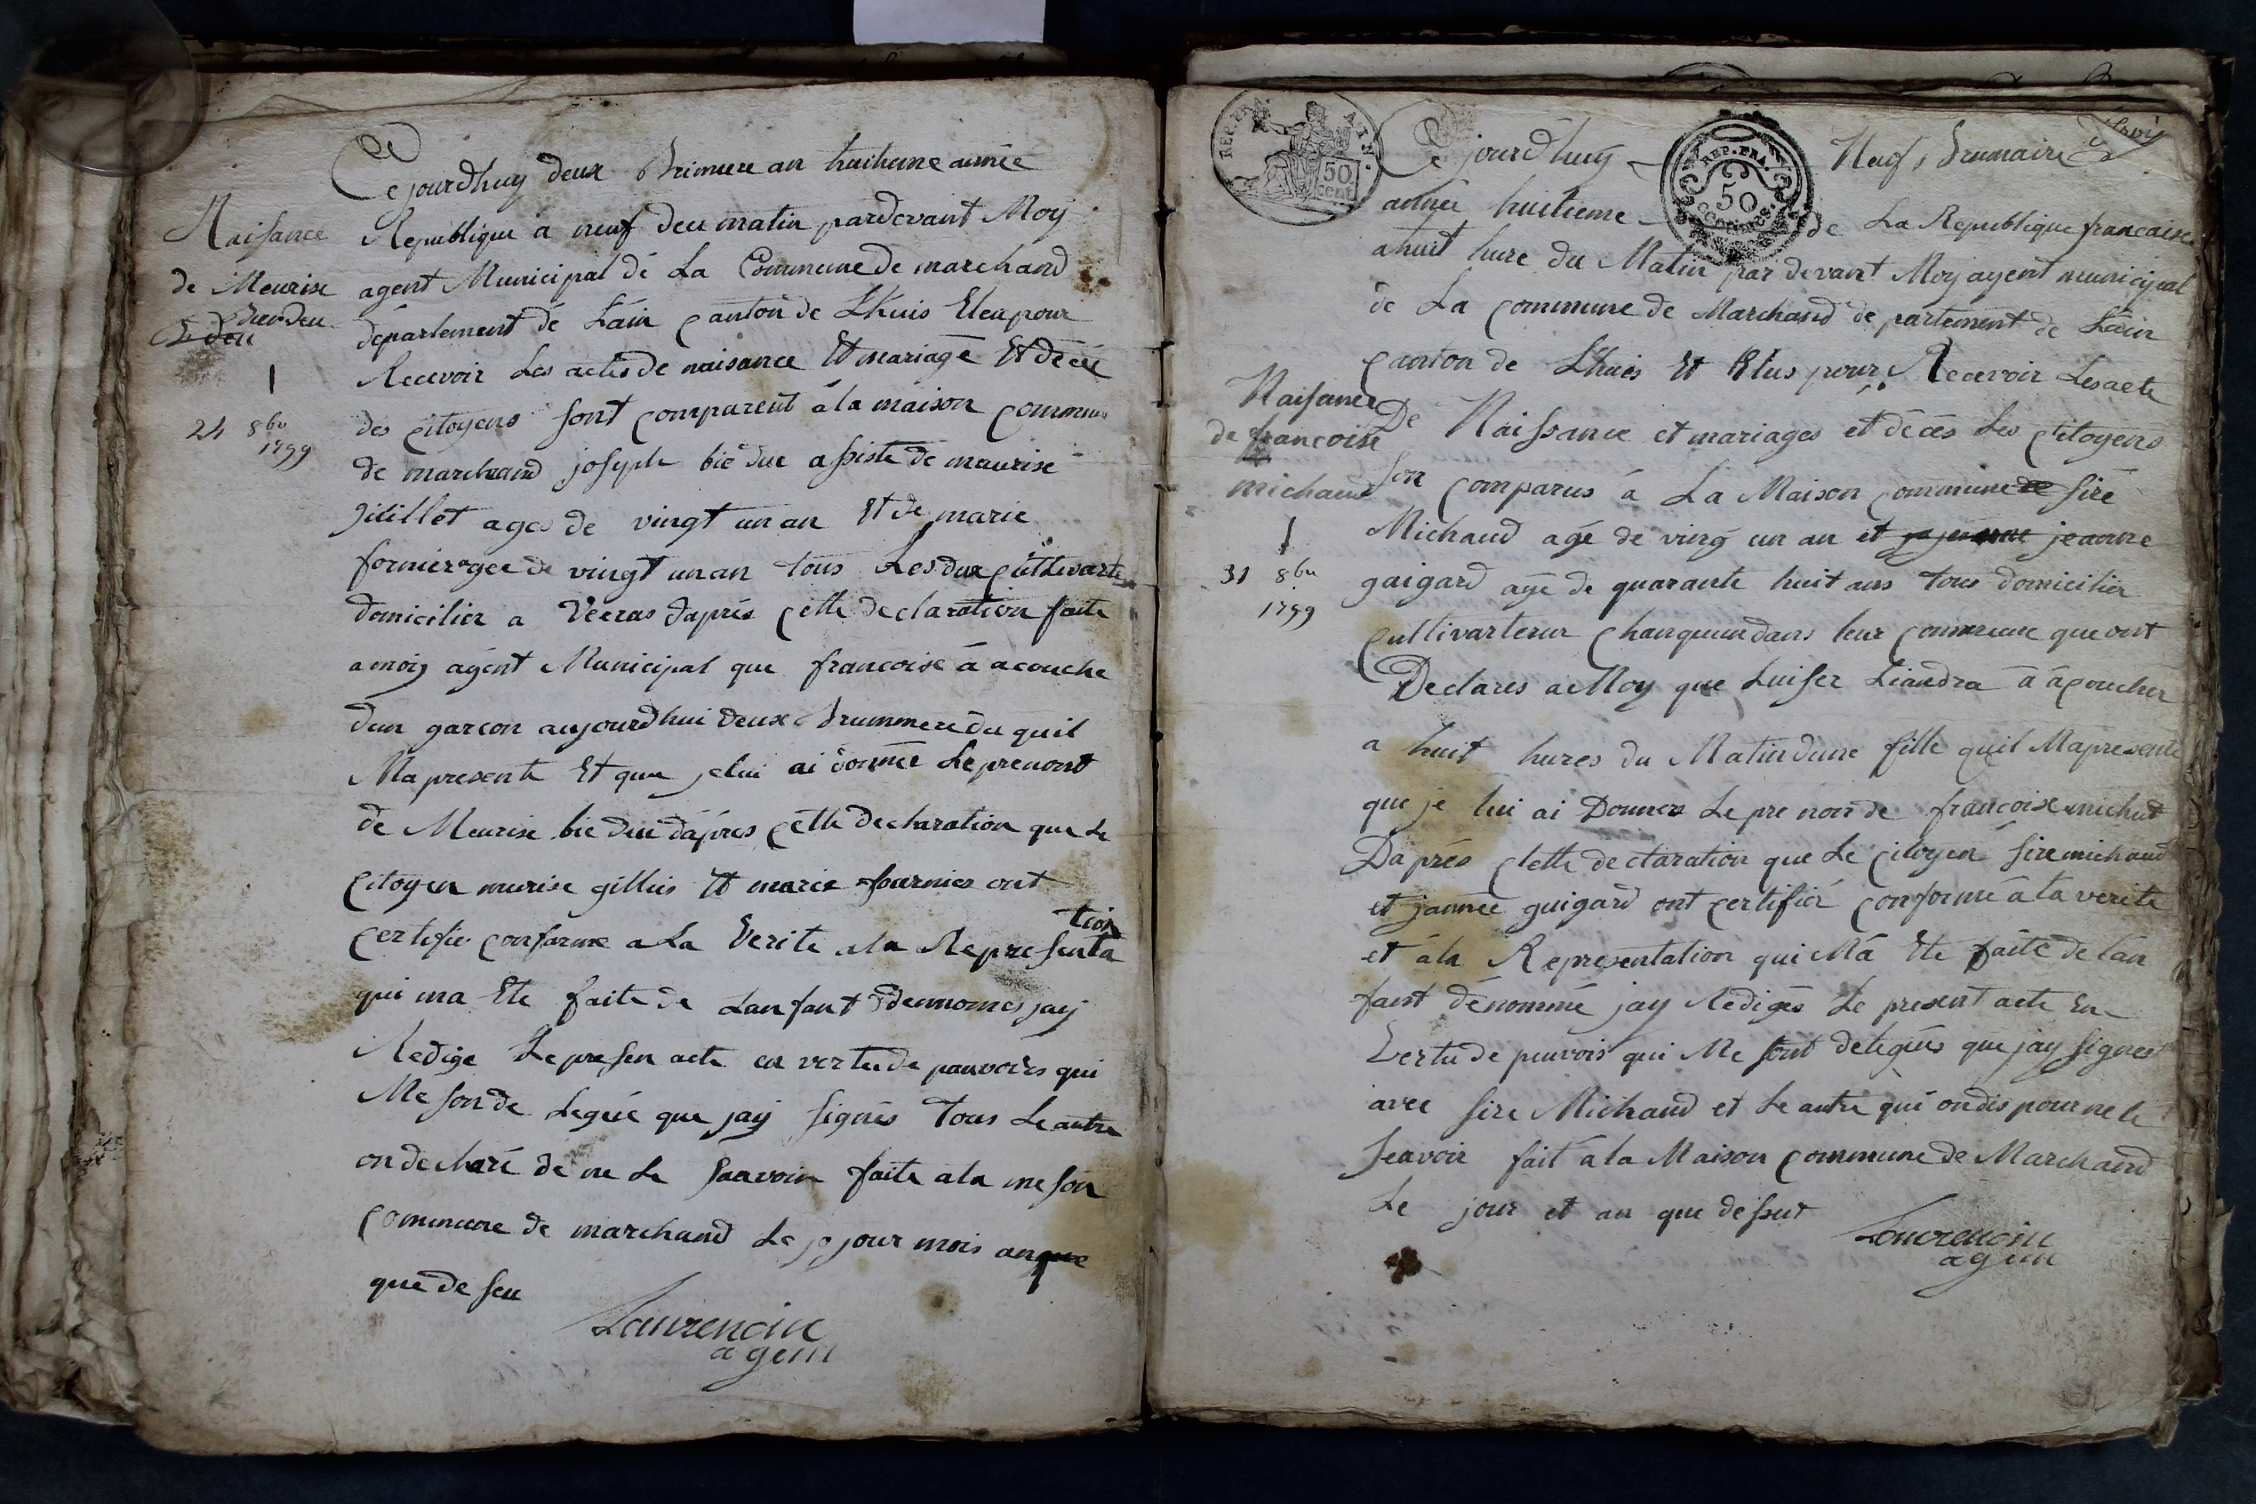 Ce jourdhuy deux Brimere an huitieme année
Naisance
de Meurise
24 8bre
1799
Republique a neuf deu matin pardevant Moy
agent Municipal dé La Commune de marchand
département dé Láin canton de Lhuis Eleu pour
Recevoir Les actes de naisance Et mariage Et décée
des citoyens sont comparent á la maison commune
de marchand joseph bié due assiste de maurise
jillet ages de vingt un an Et de marie
fornier agee de vingt un an tous Les dux
domicilier a Veeras daprés cette declaration faite
a moy agént Municipal que francoise á acouche
dun garcon aujourdhui deux Brummere du quil
Ma presente Et que je lui ai donnée Le prenont
de Meurise bié due dápres cette declaration que Le
Citoyen murise gillius Et marie fournier ont
certifie conforme a La Verite a la Representa
tion
qui ma Ete faite de Lanfant denomes jay
Redige Le presen acte en vertu de pouvoirs qui
Me son de Legué que jay signés tous Le autre
on declaré de ne Le saavoir faite a la meson
commune de marchand Le jour mois an que
que de seu
Laurencin
agent
REP. FRA.
50
cent.
REP. FRA.
50
CENTIMES.
Ce jourdhuy Neuf Brumaire
année huitieme de La Republique francaise
a huit hure du Matin par devant Moy agent municipal
de La commune de Marchand departement de Láin
canton de Lhuis Et Elus pour Recevoir Les acte
Naisance
de francoise
michaud
31 8bre
1799
De Naissance et mariages et décés Les citoyens
son comparus á La Maison commune de sire
Michaud agé de ving un an et jeanne
gaigard agé de quarante huit ans tous domicilier
cultivarterur chanqueun dans leur commune que ont
Declares a Moy que Luiser Liandra á acoucher
a huit hures du Matin dune fille quil Ma presente
que je lui ai Donner Le pre nom de francoise michut
Daprés cette declaration que Le citoyen sire michaud
et jannee guigard ont certifiér conforme á la verite
et á la Representation qui Má Ete faite de lan
fant dénommé jay Redigés Le present acte En
Vertu de peuvois qui Me sont delegués que jay signest
avec sire Michaud et Le autre qui on dis pour ne le
seavoir fait á la Maison commune de Marchand
Le jour et an que dessut
Laurencin
agent